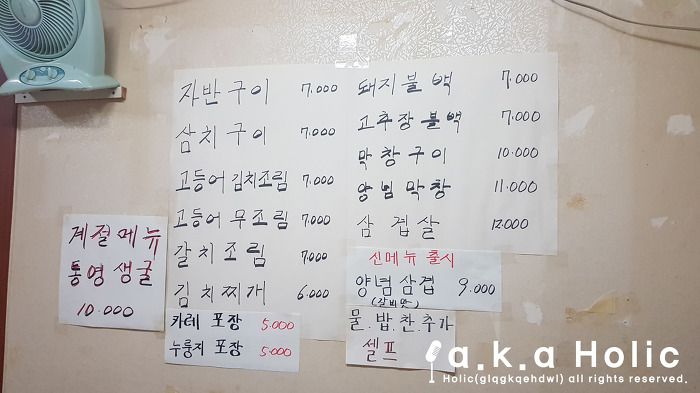 자반구이 7,000
삼치구이 7,000
고등어김치조림 7,000
고등어 무조림 7,000
갈치조림 7,000
김치찌개 6,000
카레 포장 5.000
누룽지 포장 5.000
계절메뉴
통영생굴
10.000
돼지불백 7,000
고추장불백 7,000
막창구이 10.000
양념막창 11.000
삼겹살 12.000
신메뉴 출시
양념삼겹 9.000
(갈비맛)
물.밥.찬.추가
셀프
a.k.a Holic
Holic(glqgkqehdwl) all rights reserved.